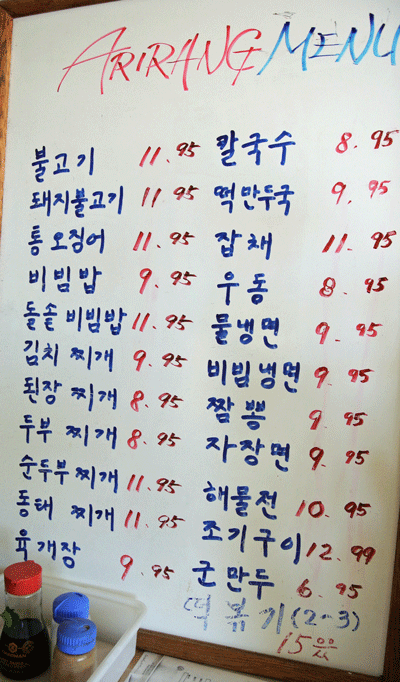 ARIRANG MENU
불고기 11.95
돼지불고기 11.95
통오징어 11.95
비빔밥 9.95
돌솥 비빔밥 11.95
김치 찌개 9.95
된장 찌개 8.95
두부 찌개 8.95
순두부찌개 11.95
동태 찌개 11.95
육개장 9.95
칼국수 8.95
떡만두국 9.95
잡채 11.95
우동 8.95
물냉면 9.95
비빔냉면 9.95
짬뽕 9.95
자장면 9.95
해물전 10.95
조기구이 12.99
군만두 6.95
떡볶기(2-3)
15.00